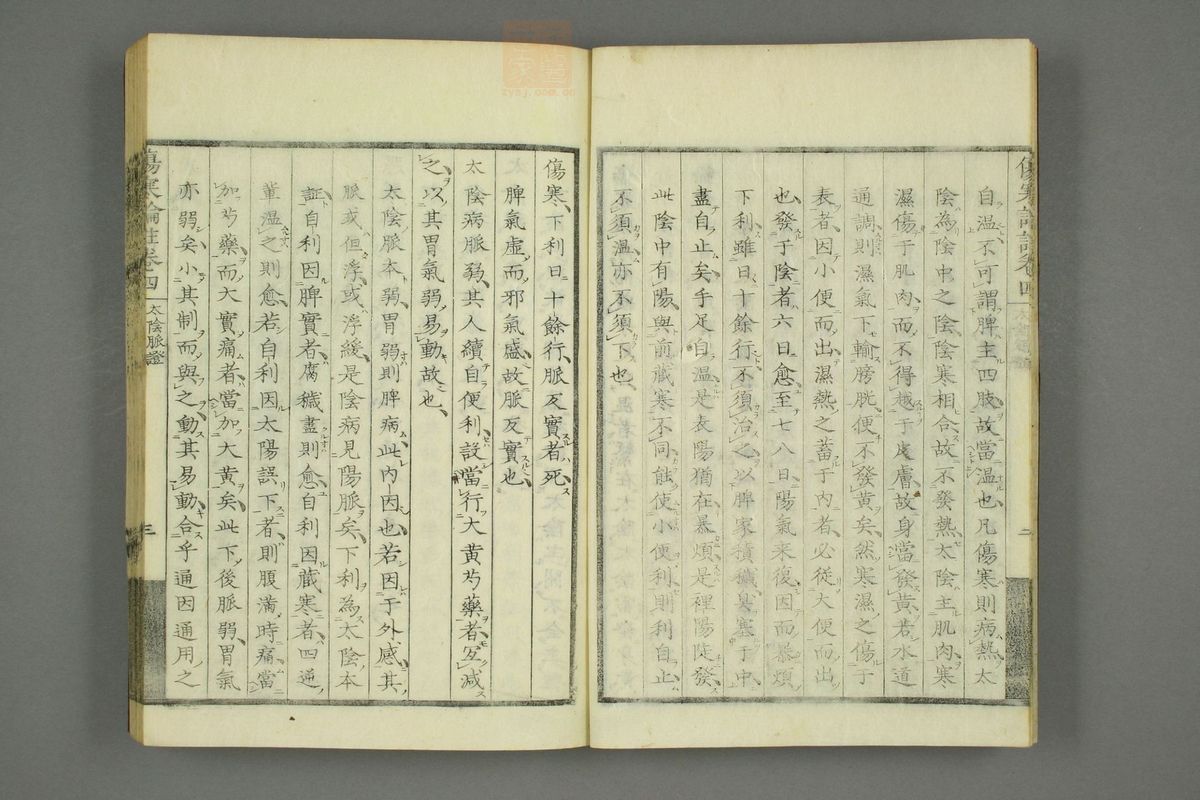 自温不可謂脾主四肢故當温也凡傷寒則病熱太
陰為陰中之陰陰寒相合故不發熱太陰主肌肉寒
濕傷于肌肉而不得越于皮膚故身當發黃若水道
通調則濕氣下輸膀胱便不發黃矣然寒濕之傷于
表者因小便而出濕熱之蓄于内者必從大便而出
也發于陰者六日愈至七八日陽氣来復因而暴煩
下利雖日十餘行不須治之以脾家積穢臭塞于中
盡自止矣手足自温是表陽猶在暴煩是裡陽陡發
此陰中有陽與前藏寒不同能使小便利則利自止
不須温亦不須下也
傷寒論註卷四
二
傷寒下利日十餘行脈反實者死
脾氣虛而邪氣盛故脈反實也
太陰病脈弱其人續自便利設當行大黃芍藥者宜減
之以其胃氣弱易動故也
太陰脈本弱胃弱則脾病此内因也若因于外感其
脈或但浮或浮緩是陰病見陽脈矣下利為太陰本
証自利因脾實者腐穢盡則愈自利因藏寒者四逆
輩温之則愈若自利因太陽誤下者則腹滿時痛當
加芍藥而大實痛者當加大黃矣此下後脈弱胃氣
亦弱矣小其制而與之動其易動合乎通因通用之
傷寒論註卷四
太陰脈證
三
zysj.com.cn